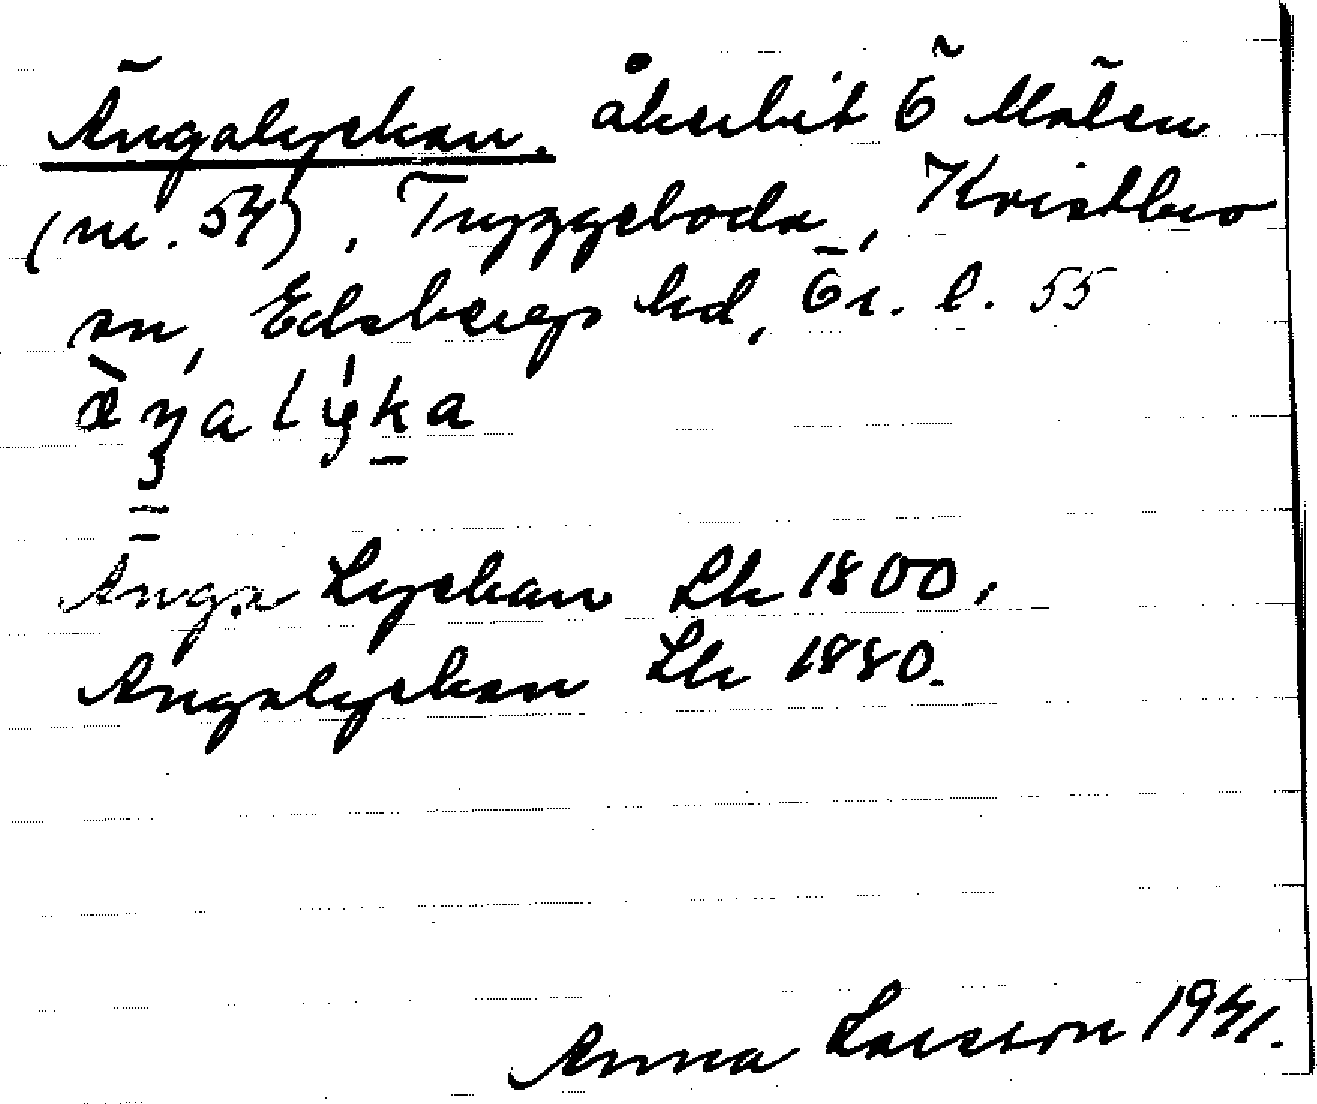 Ängalyckan. åkerbit Ö Mölen
(nr. 54), Tryggeboda, Kvistbro
sn, Edsbergs hd, Ör. l. 55
Änga Lyckan Lh 1800,
Ängalyckan Lh 1880.
Anna Larsson 1941.